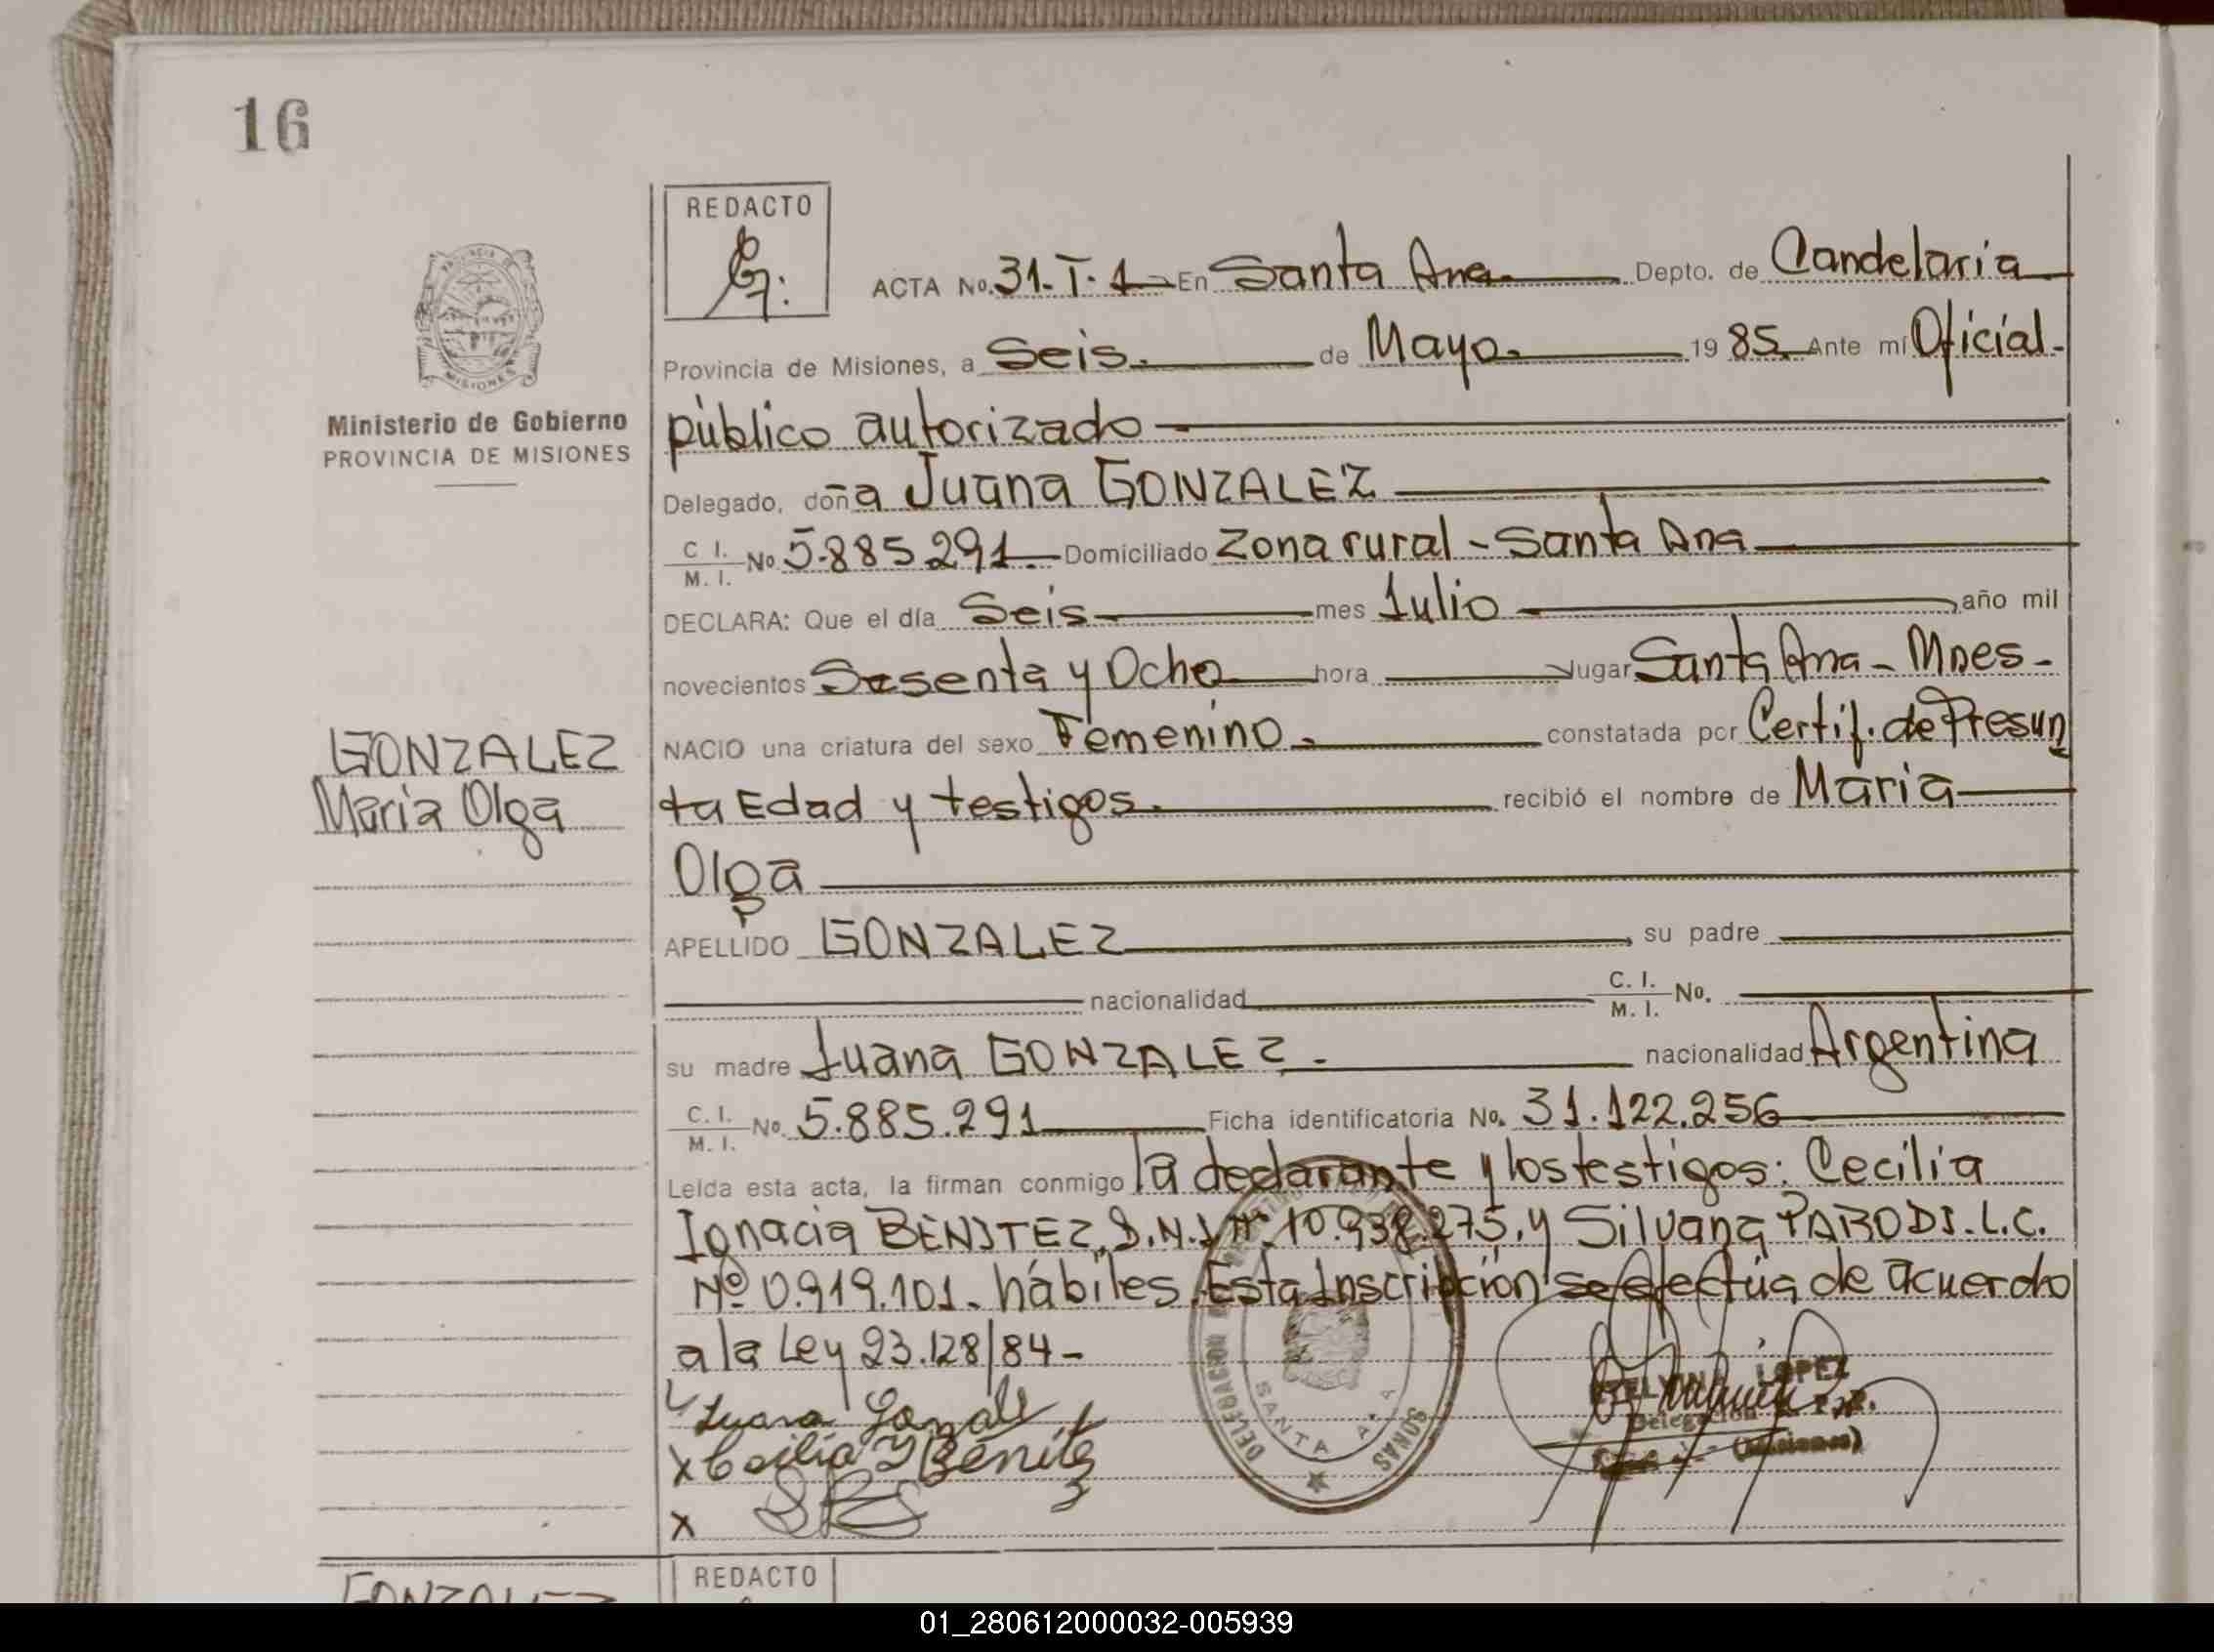 16
REDACTO
ACTA No. 31-T.1 En Santa Ana Depto. de Candelaria
Provincia de Misiones, a Seis. de Mayo. 19 85. Ante mí Oficial-
Ministerio de Gobierno
PROVINCIA DE MISIONES
público autorizado
Delegado, doña Juana GONZALEZ
C I. M. I. No 5.885.291 Domiciliado Zona rural - Santa Ana
DECLARA: Que el día Seis mes Julio año mil
novecientos Sesenta y Ocho hora lugar Santa Ana - Mnes-
NACIO una criatura del sexo Femenino. constatada por Certif. de Presun
GONZALEZ
Maria Olga
ta Edad y testigos. recibió el nombre de Maria
Olga
APELLIDO GONZALEZ su padre
nacionalidad C. I. M. I. No.
su madre Juana GONZALEZ. nacionalidad Argentina
C. I. M. I. No. 5.885.291 Ficha identificatoria No. 31.122.256
Leída esta acta, la firman conmigo la declarante y los testigos: Cecilia
Ignacia BENITEZ, D.N.I Nº 10.938.275, y Silvana PARODI. L.C.
Nº 0.919.101. hábiles. Esta Inscripción se efectúa de acuerdo
a la Ley 23.128/84-
Juana Gonzale
x Cecilia I Benitez
x
DELEGACION
SONAS
SANTA ANA
LOPEZ
Delegacion
(Misiones)
GONZALEZ
REDACTO
01_280612000032-005939